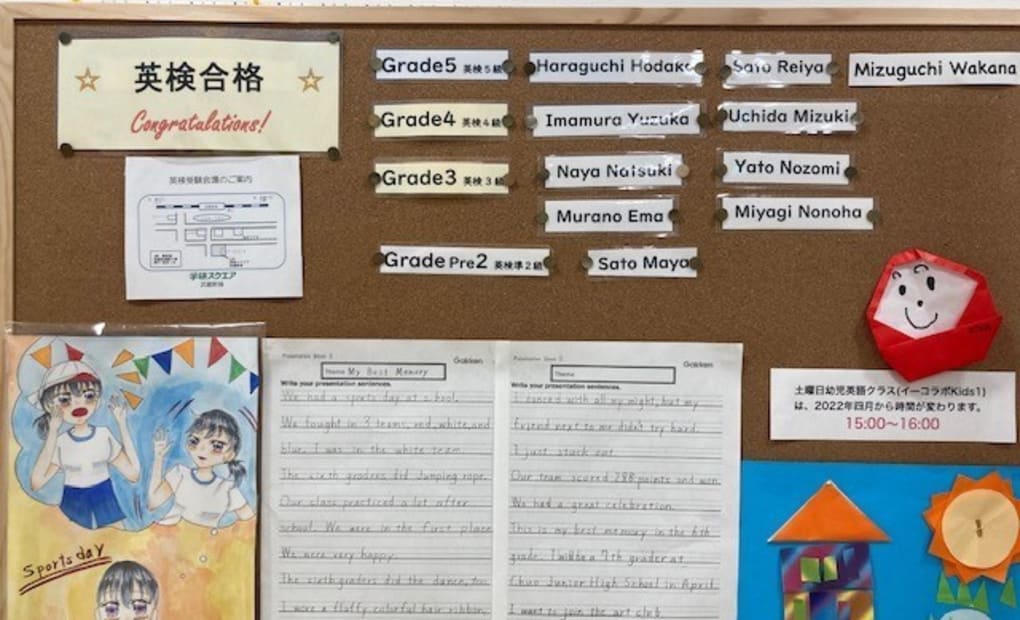 英検合格
Congratulations!
Grade5 英検5級 Haraguchi Hodaka Sato Reiya Mizuguchi Wakana
Grade4 英検4級 Imamura Yuzuka Uchida Mizuki
Grade3 英検3級 Naya Natsuki Yato Nozomi
Murano Ema Miyagi Nonoha
Grade Pre2 英検準2級 Sato Maya
英検受験会場のご案内
学研スクエア
武蔵新城
土曜日幼児英語クラス(イーコラボKids1)
は、2022年四月から時間が変わります。
15:00～16:00
Sports day
Gakken
Theme My Best Memory
Write your presentation sentences.
We had a sports day at school.
We fought in 3 teams, red, white, and
blue. I was in the white team.
The sixth graders did jumping rope.
Our class practiced a lot after
school. We were in the first place.
We were very happy.
The sixth graders did the dance, too.
I wore a fluffy colorful hair ribbon.
Gakken
Theme
Write your presentation sentences.
I danced with all my might, but my
friend next to me didn't try hard.
I just stuck out.
Our team scored 288 points and won.
We had a great celebration.
This is my best memory in the 6th
grade. I will be a 7th grader at
Chuo Junior High School in April.
I want to join the art club